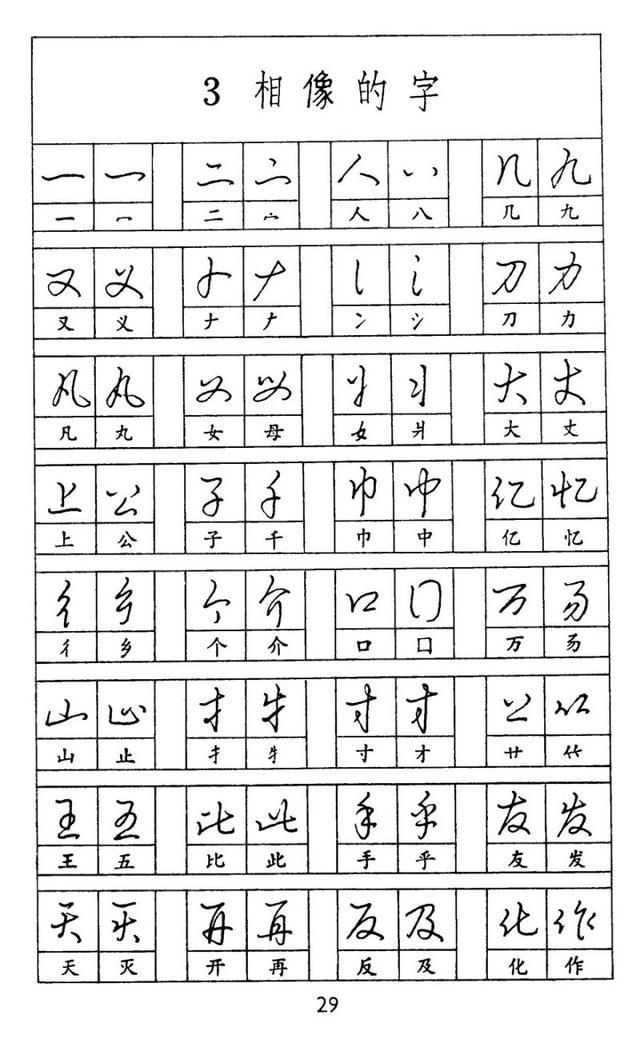 3 相像的字
一 一 二 亠 人 八 几 九
一 冖 二 亠 人 八 几 九
又 义 ナ ナ 冫 氵 刀 力
又 义 ナ 冫 氵 刀 力
凡 丸 女 母 女 爿 大 丈
凡 丸 女 母 女 丬 大 丈
上 公 子 千 巾 中 亿 忆
上 公 子 千 巾 中 亿 忆
彳 乡 个 介 口 囗 万 易
彳 乡 个 介 口 囗 万 
山 止 扌 牜 寸 才 艹 竹
山 止 扌 牜 寸 才 艹 竹
王 五 比 此 手 乎 友 发
王 五 比 此 手 乎 友 发
天 灭 开 再 反 及 化 作
天 灭 开 再 反 及 化 作
29